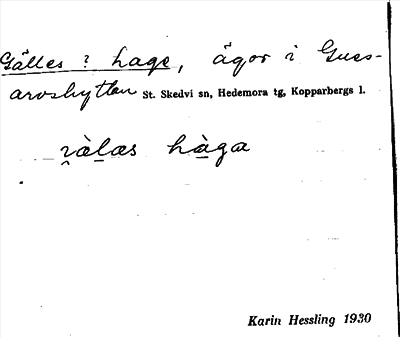 Gålles ? hage, ägor i Gues-
arvshyttan St. Skedvi sn, Hedemora tg, Kopparbergs l.
hàga
Karin Hessling 1930